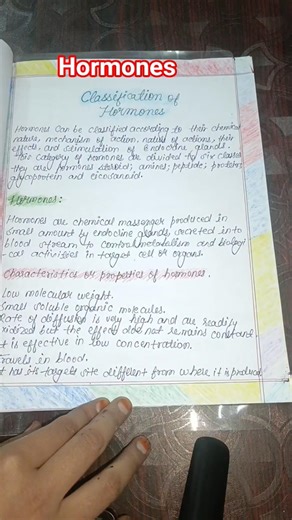 Hormones
Classification of
Hormones
Hormones can be classified according to their chemical
nature, mechanism of action, nature of actions, their
effects, and stimulation of Endocrine glands.
This category of hormones are divided to six classes
they are hormones steroid; amines; peptide; protein;
glycoprotein and eicosanoid.
Hormones:
Hormones are chemical massenger produced in
small amount by endocrine glands, secreted into
blood stream to control metabolism and biologi
-cal activities in target cell or organs.
Characteristics or properties of hormones.
Low molecular weight.
Small soluble organic molecules.
Rate of diffusion is very high and are readily
oxidized but the effect does not remains constant
It is effective in low concentration.
Travels in blood.
It has its target site different from where it is produce